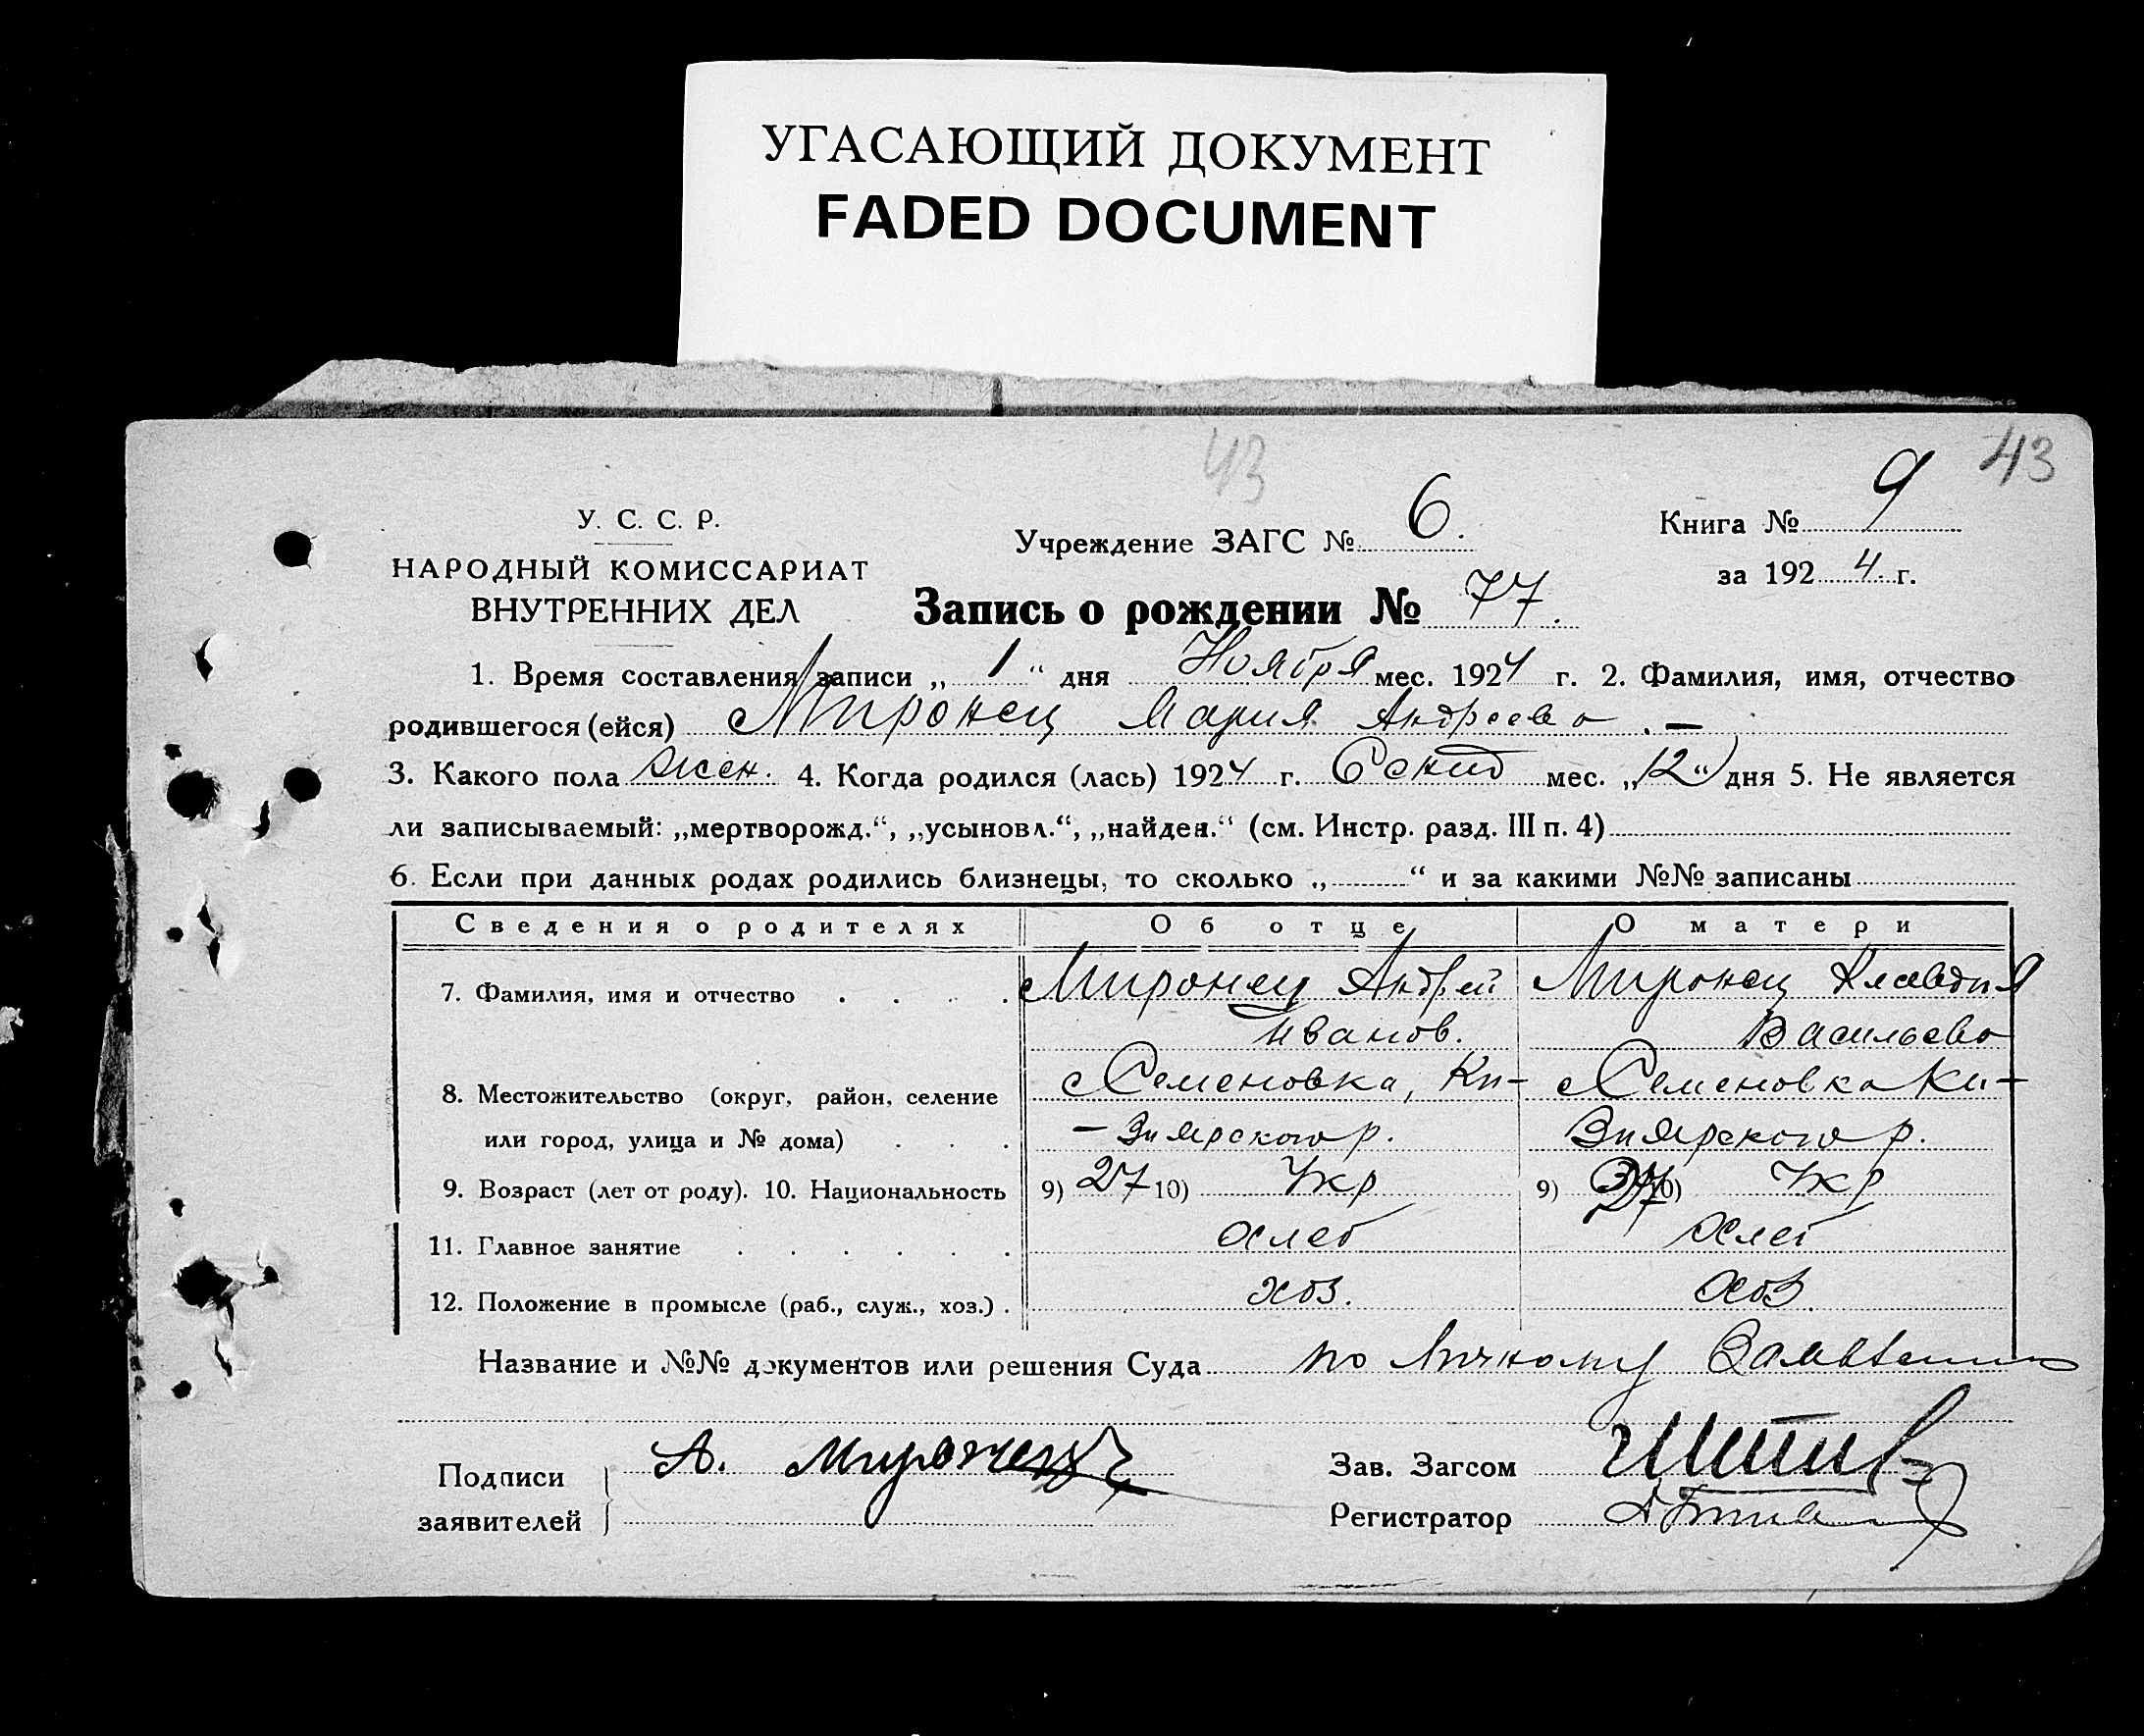 УГАСАЮЩИЙ ДОКУМЕНТ
FADED DOCUMENT
43
43
У. С. С. Р.
НАРОДНЫЙ КОМИССАРИАТ
ВНУТРЕННИХ ДЕЛ
Учреждение ЗАГС № 6.
Книга № 9
за 1924 г.
Запись о рождении № 77.
1. Время составления записи „ 1 “ дня Ноября мес. 1924 г. 2. Фамилия, имя, отчество
родившегося (ейся) Миронец Мария Андреева . —
3. Какого пола жен. 4. Когда родился (лась) 1924 г. мес. „12“ дня 5. Не является
ли записываемый: „мертворожд.“, „усыновл.“, „найден.“ (см. Инстр. разд. III п. 4)
6. Если при данных родах родились близнецы, то сколько „ “ и за какими №№ записаны
Сведения о родителях Об отце О матери
7. Фамилия, имя и отчество . . . . Миронец Андрей Миронец Клавдия
Иванов. Васильева
8. Местожительство (округ, район, селение с Семеновка, Ки- с Семеновка Ки-
или город, улица и № дома) . . . - зиярского р. зиярского р.
9. Возраст (лет от роду). 10. Национальность 9) 27 10) Укр 9) 27 10) Укр
11. Главное занятие . . . . . . хлеб хлеб
12. Положение в промысле (раб., служ., хоз.) . хоз. хоз.
Название и №№ документов или решения Суда по личному
Подписи А. Миронец Зав. Загсом
заявителей Регистратор